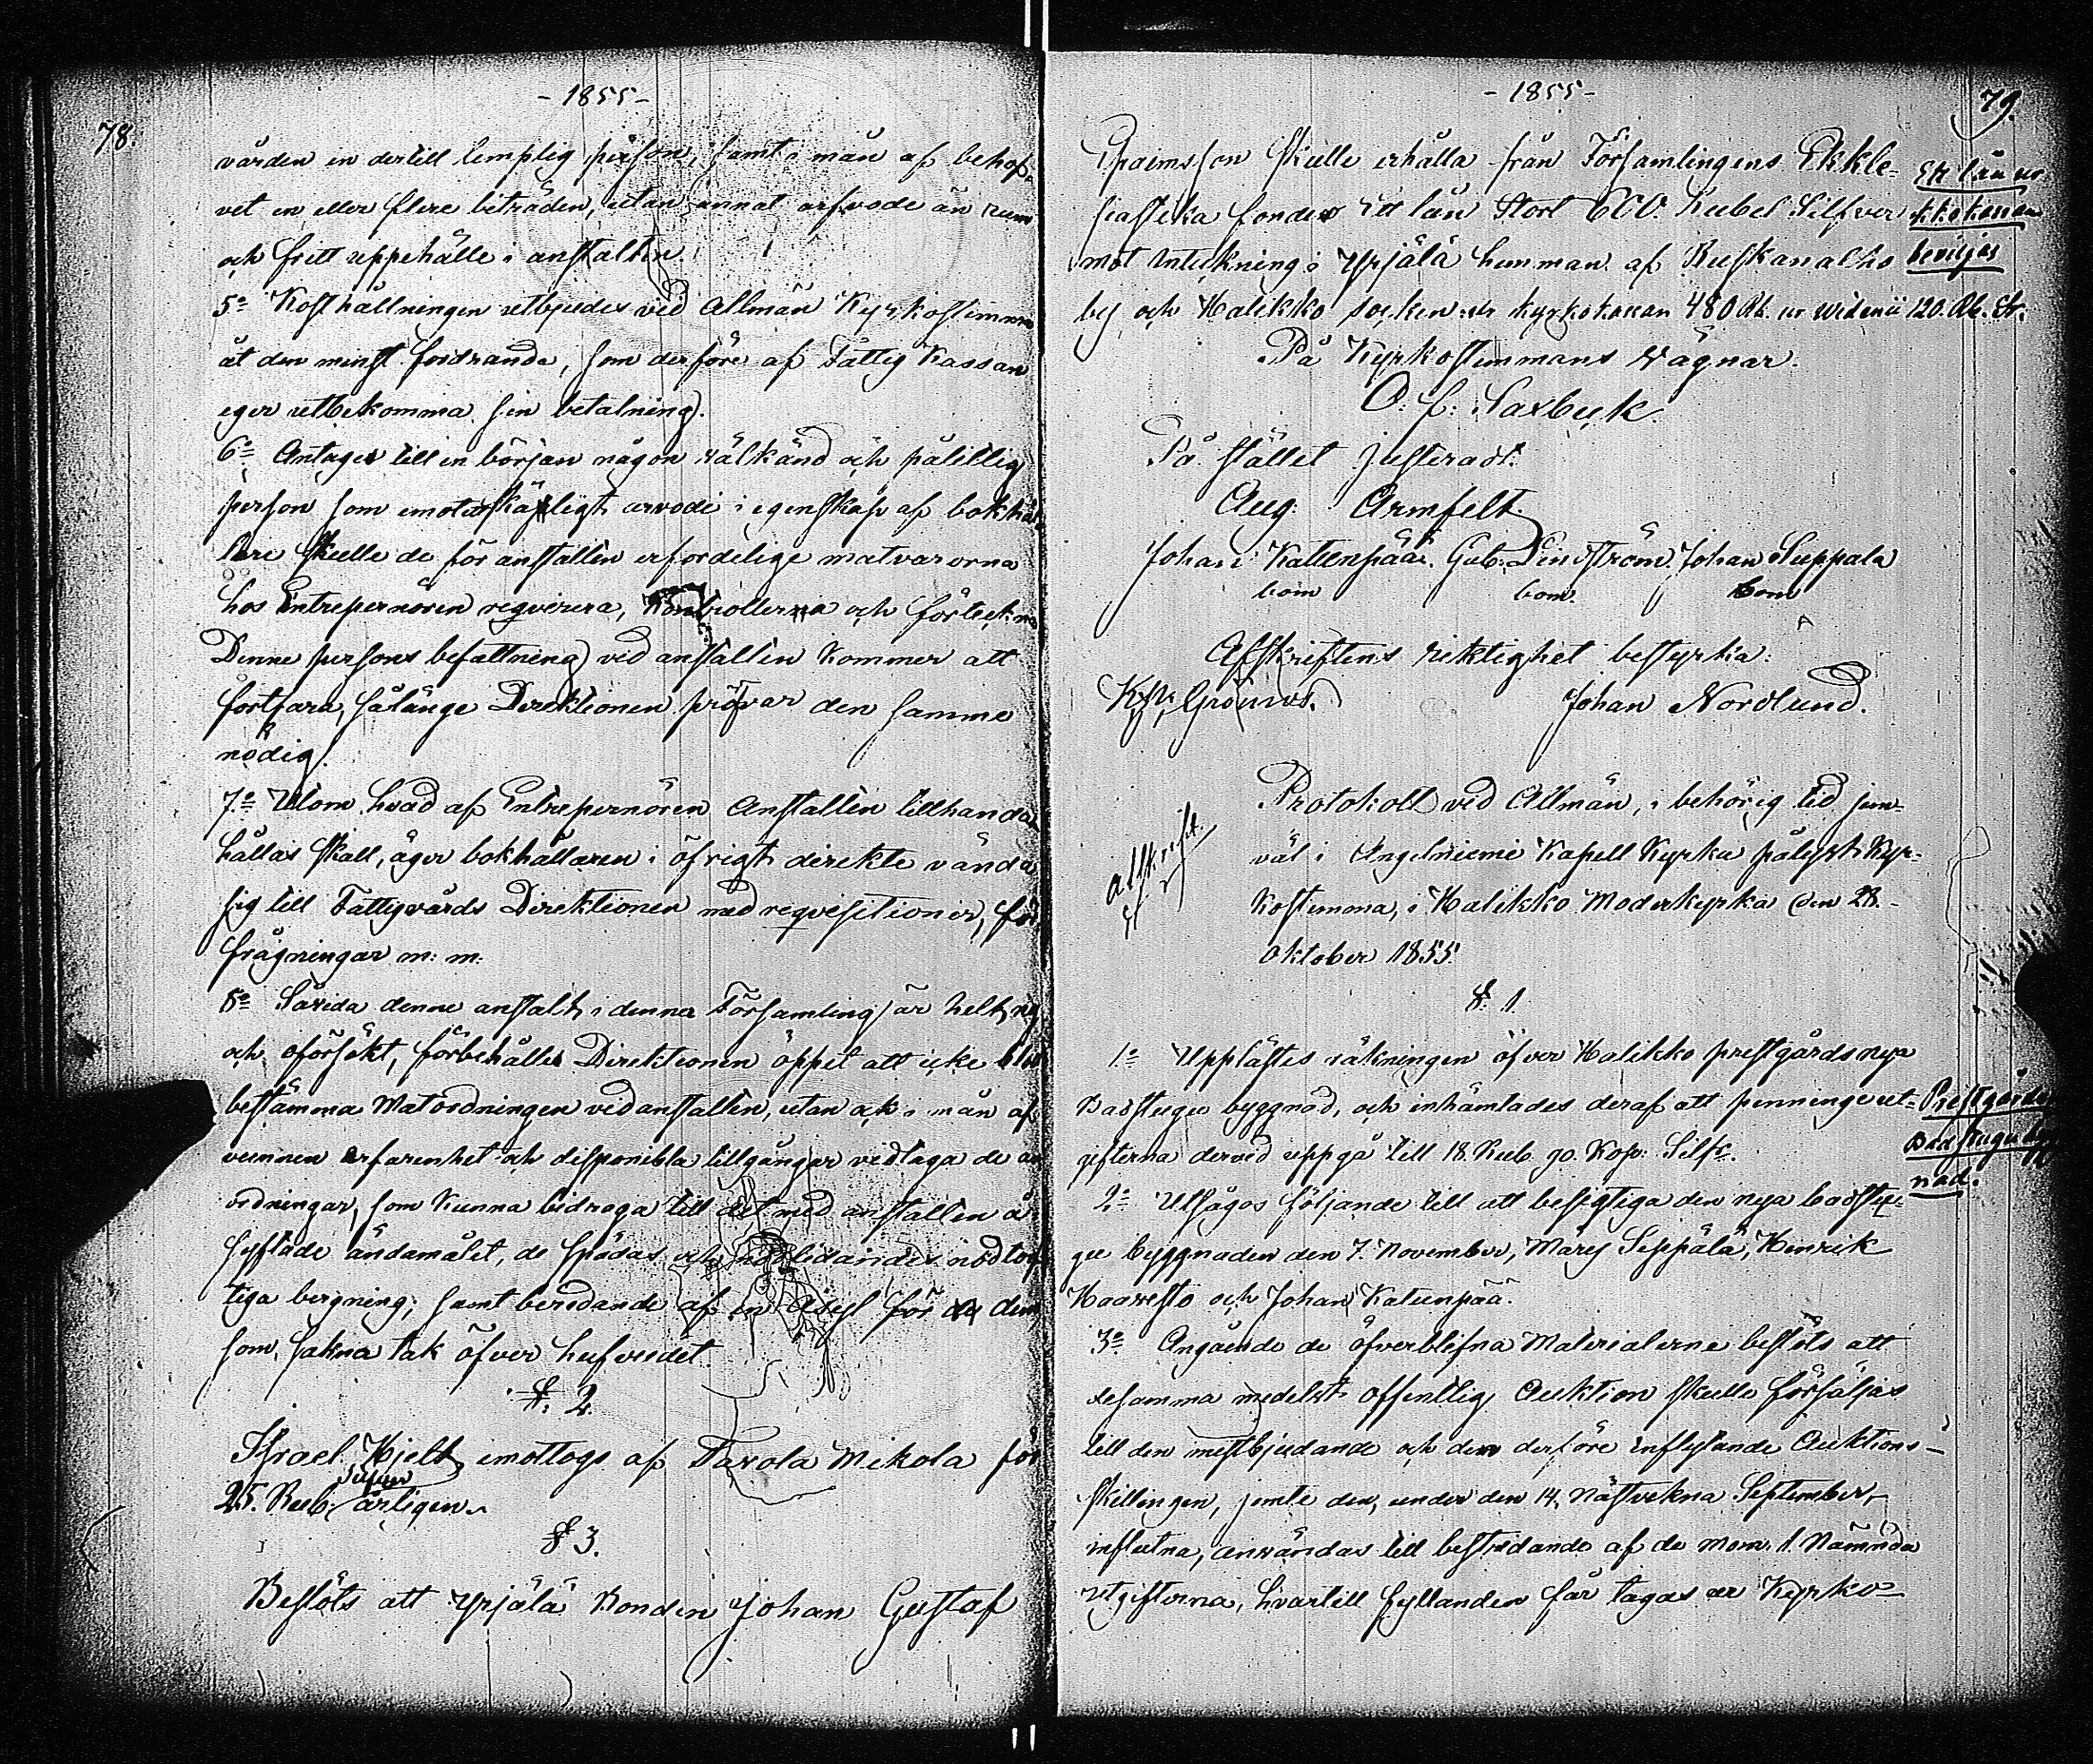 - 1855 -
78.
vården en dertill lemplig person, samt i mån af behof-
vet en eller flere biträden, utan annat arfvode än rum
och fritt uppehälle i anstalten.
5o Kosthållningen utbjudes vid Allmän Kyrkostimma
åt den minst fordrande, som derföre af Fattig Kassan
eger utbekomma sin betalning.
6o Antages till en början någon välkänd och pålitlig
person som emot skäligt arvode i egenskap af bokhål-
lare skulle de för anstalten erforderlige matvarorna
hos Entreprenören reqvirera, Kontrollerna och förteckna
Denne persons befattning vid anstalten kommer att
fortfara, sålänge Direktionen pröfvar den samme
nödig.
7o Utom hvad af Entreprenören Anstalten tillhanda
hållas skall, äger bokhållaren i öfrigt direkte vända
sig till Fattigvårds Direktionen med reqvisitioner, för
frågningar m: m:
8o Såvida denne anstalt i denna Församling är helt ny
och oförsökt, förbehåller Direktionen öppet att icke blott
bestämma Matordningen vid anstalten, utan ock i mån af
vunnen erfarenhet och disponibla tillgångar vidtaga de an
ordningar, som kunna bidraga till det med anstallen å-
syftade ändamålet, de spädas och nödlidandes nödtorf
tiga bergning, samt beredande af en Asyl för dem
som sakna tak öfver hufvudet.
§. 2.
Israel Hjelt emottogs af Tavola Mikola för
25. Rub. årligen.
§ 3.
Beslöts att Yrjälä Bonden Johan Gustaf
- 1855 -
79.
Efraimsson skulle erhålla från Församlingens Ekkle-
siastika fonder ett lån stort 600. Rubel Silfver
mot inteckning i Yrjälä hemman af Ruskanalho
by och Halikko socken: ur kyrkokassan 480 Rb. ur Widenii 120. Rb. Sr.
Ett lån ur
kkokassan
beviljas
På Kyrkostimmans Vägnar.
O. f: Saxbeck.
På stället justeradt.
Aug. Armfelt.
Johan Kattenpää. Gab: Lindström. Johan Suppala
bom bom. bom
Afskriftens riktighet bestyrka:
Johan Nordlund.
Protokoll vid Allmän, i behörig tid jem-
väl i Angelniemi Kapell Kyrka pålyst Kyr-
kostimma, i Halikko Moderkyrka den 28.
Oktober 1855.
§. 1.
1o Upplästes räkningen öfver Halikko prestgårds nya
Badstugu byggnad, och inhämtades deraf att penningeut-
gifterna dervid uppgå till 18. Rub. 90. Kop: Silfr.
Prestgårds
Badstugu bygg
nad.
2o Utsågos följande till att besigtiga den nya badstu-
gu byggnaden den 7. November, Mårts Seppälä, Henrik
Haavisto och Johan Katunpää.
3o Angående de öfverblifna Materialerne beslöts att
desamma medelst offentlig Auktion skulle försäljas
till den mestbjudande och den derföre inflytande Auktions-
skillingen, jemte den, under den 14. Nästvekna September,
influtna, användas till bestridande af de mom. 1 Nämnda
Utgifterna, hvartill fyllanden får tagas ur Kyrko-